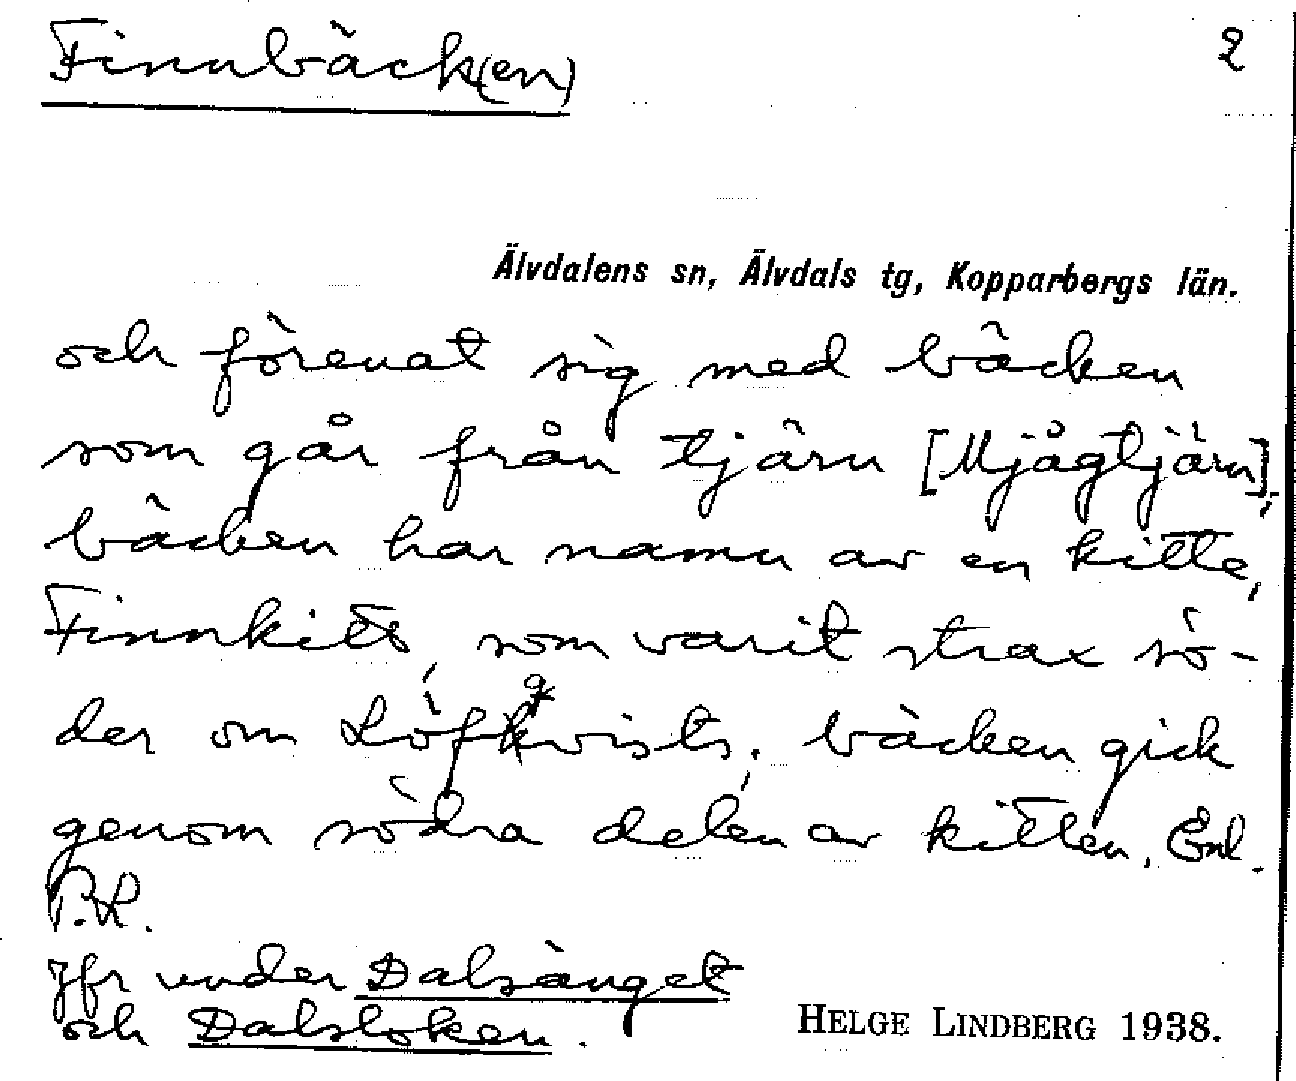 Finnbäck(en) 2
Älvdalens sn, Älvdals tg, Kopparbergs län.
och förenat sig med bäcken
som går från tjärn [Mjågtjärn];
bäcken har namn av en kitte,
Finnkito, som varit strax sö-
der om Löfqvists; bäcken gick
genom södra delen av kitten. Enl.
P.L.
Jfr under Dalsänget
och Dalsloken.
HELGE LINDBERG 1938.